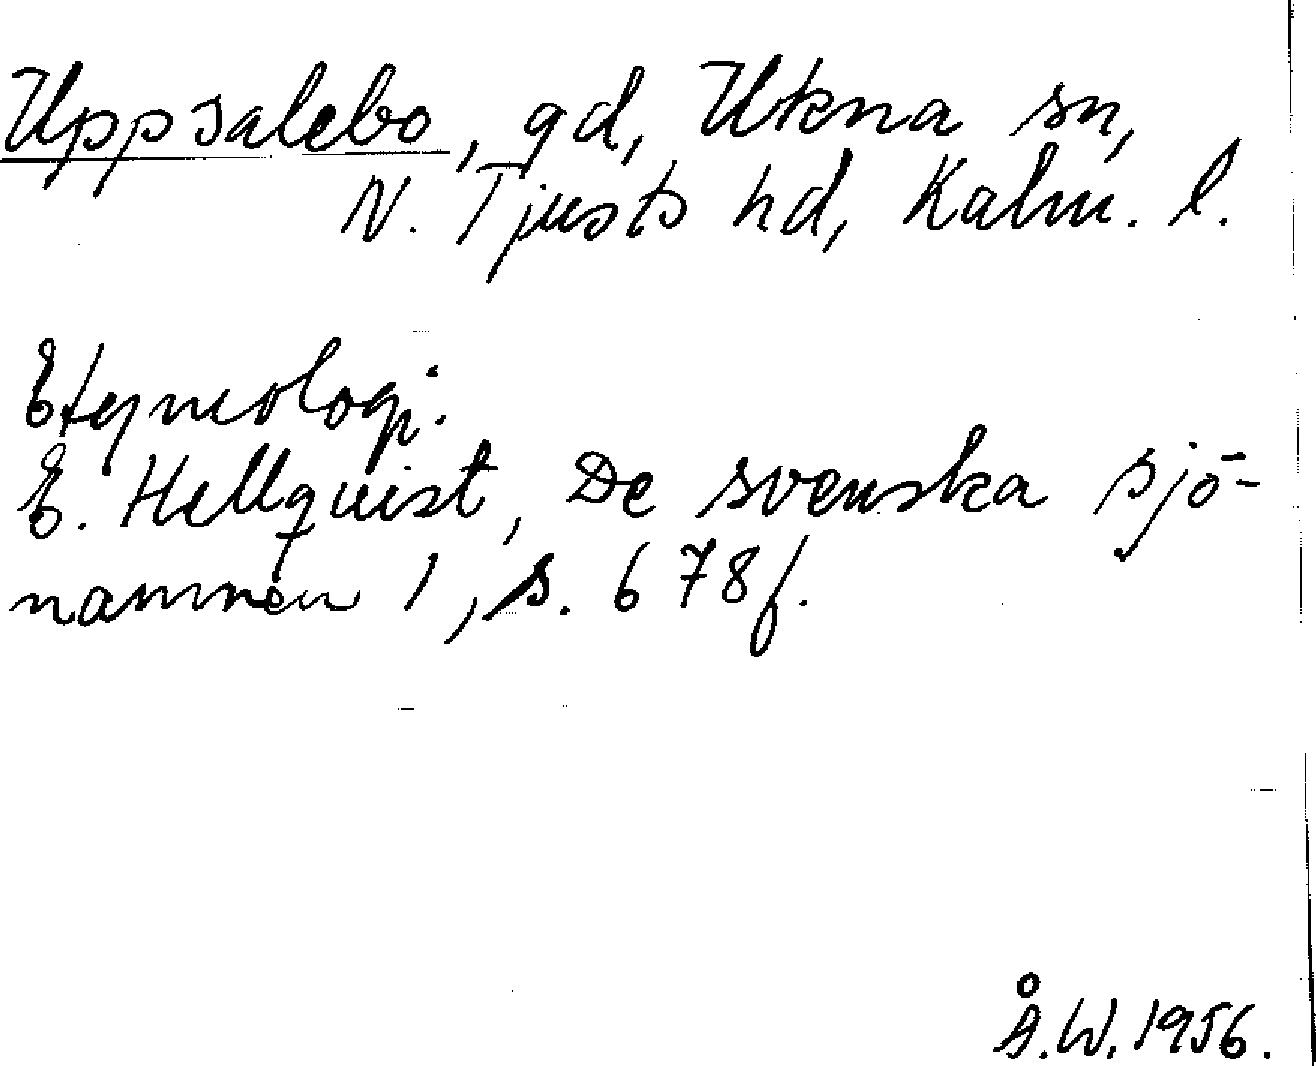 Uppsalebo, gd, Ukna sn,
N. Tjusts hd, Kalm. l.
Etymologi.
E. Hellquist, De svenska sjö-
namnen 1, s. 678f.
Å.W. 1956.